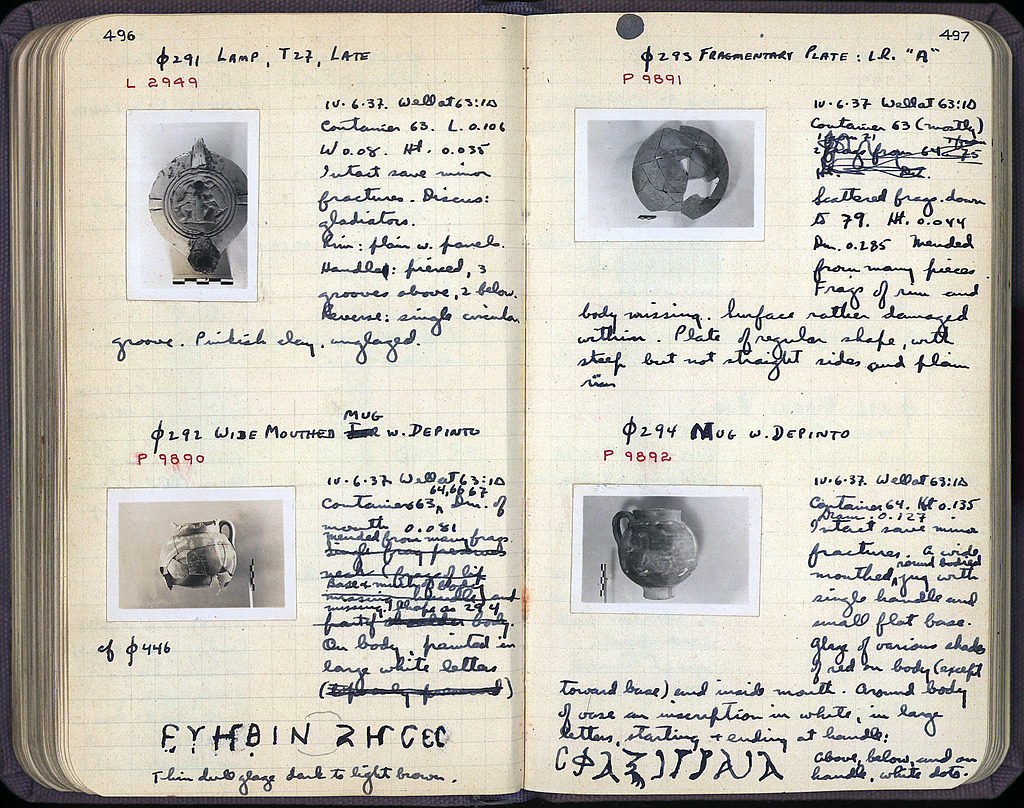 496
ϕ291 LAMP, T27, LATE
L 2949
IV·6·37. Well at 63:ΙΔ
Container 63. L. 0.106
W 0.08. Ht. 0.035
Intact save minor
fractures. Discus:
gladiators.
Rim: plain w. panels.
Handle: pierced, 3
grooves above, 2 below.
Reverse: single circular
groove. Pinkish clay, unglazed.
MUG
ϕ292 WIDE MOUTHED W. DEPINTO
P 9890
IV·6·37 Well at 63:ΙΔ
64, 66 67
Container 63 Dm. of
mouth 0.081
mended from many frags.
Base + much of body
missing. Shape as 294
On body, painted in
large white letters
cf ϕ446
ΕΥΗΘΙΝ ΖΗCЄC
Thin dull glaze dark to light brown.
497
ϕ293 FRAGMENTARY PLATE: L.R. "A"
P 9891
IV·6·37 Well at 63:ΙΔ
Container 63 (mostly)
1 from 71
Scattered frags. down
to 79. Ht. 0.044
Dm. 0.285 Mended
from many pieces
Frags of rim and
body missing. Surface rather damaged
within. Plate of regular shape, with
steep but not straight sides and plain
rim
ϕ294 MUG W. DEPINTO
P 9892
IV·6·37. Well at 63:ΙΔ
Container 64. Ht 0.135
Diam. 0.127
Intact save minor
fractures. A wide
round bodied
mouthed jug with
single handle and
small flat base.
Glaze of various shades
of red on body (except
toward base) and inside mouth. Around body
of vase an inscription in white, in large
letters, starting + ending at handle:
above, below, and on
handle, white dots.